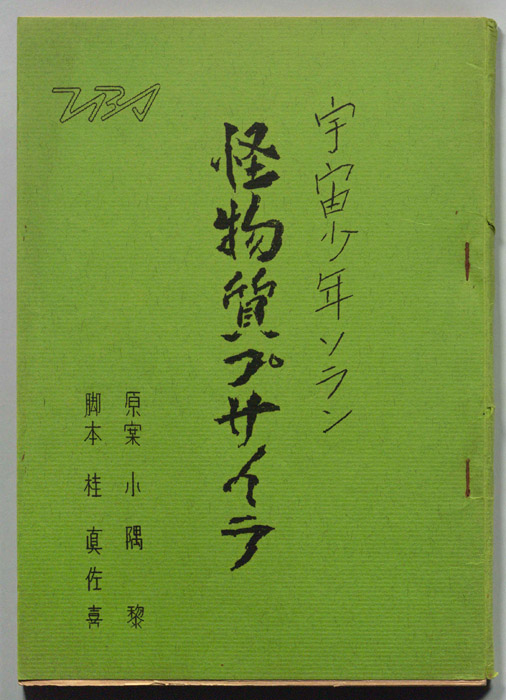 宇宙少年ソラン
怪物質プサイラ
原案 小隅 黎
脚本 桂 真佐喜
TBS